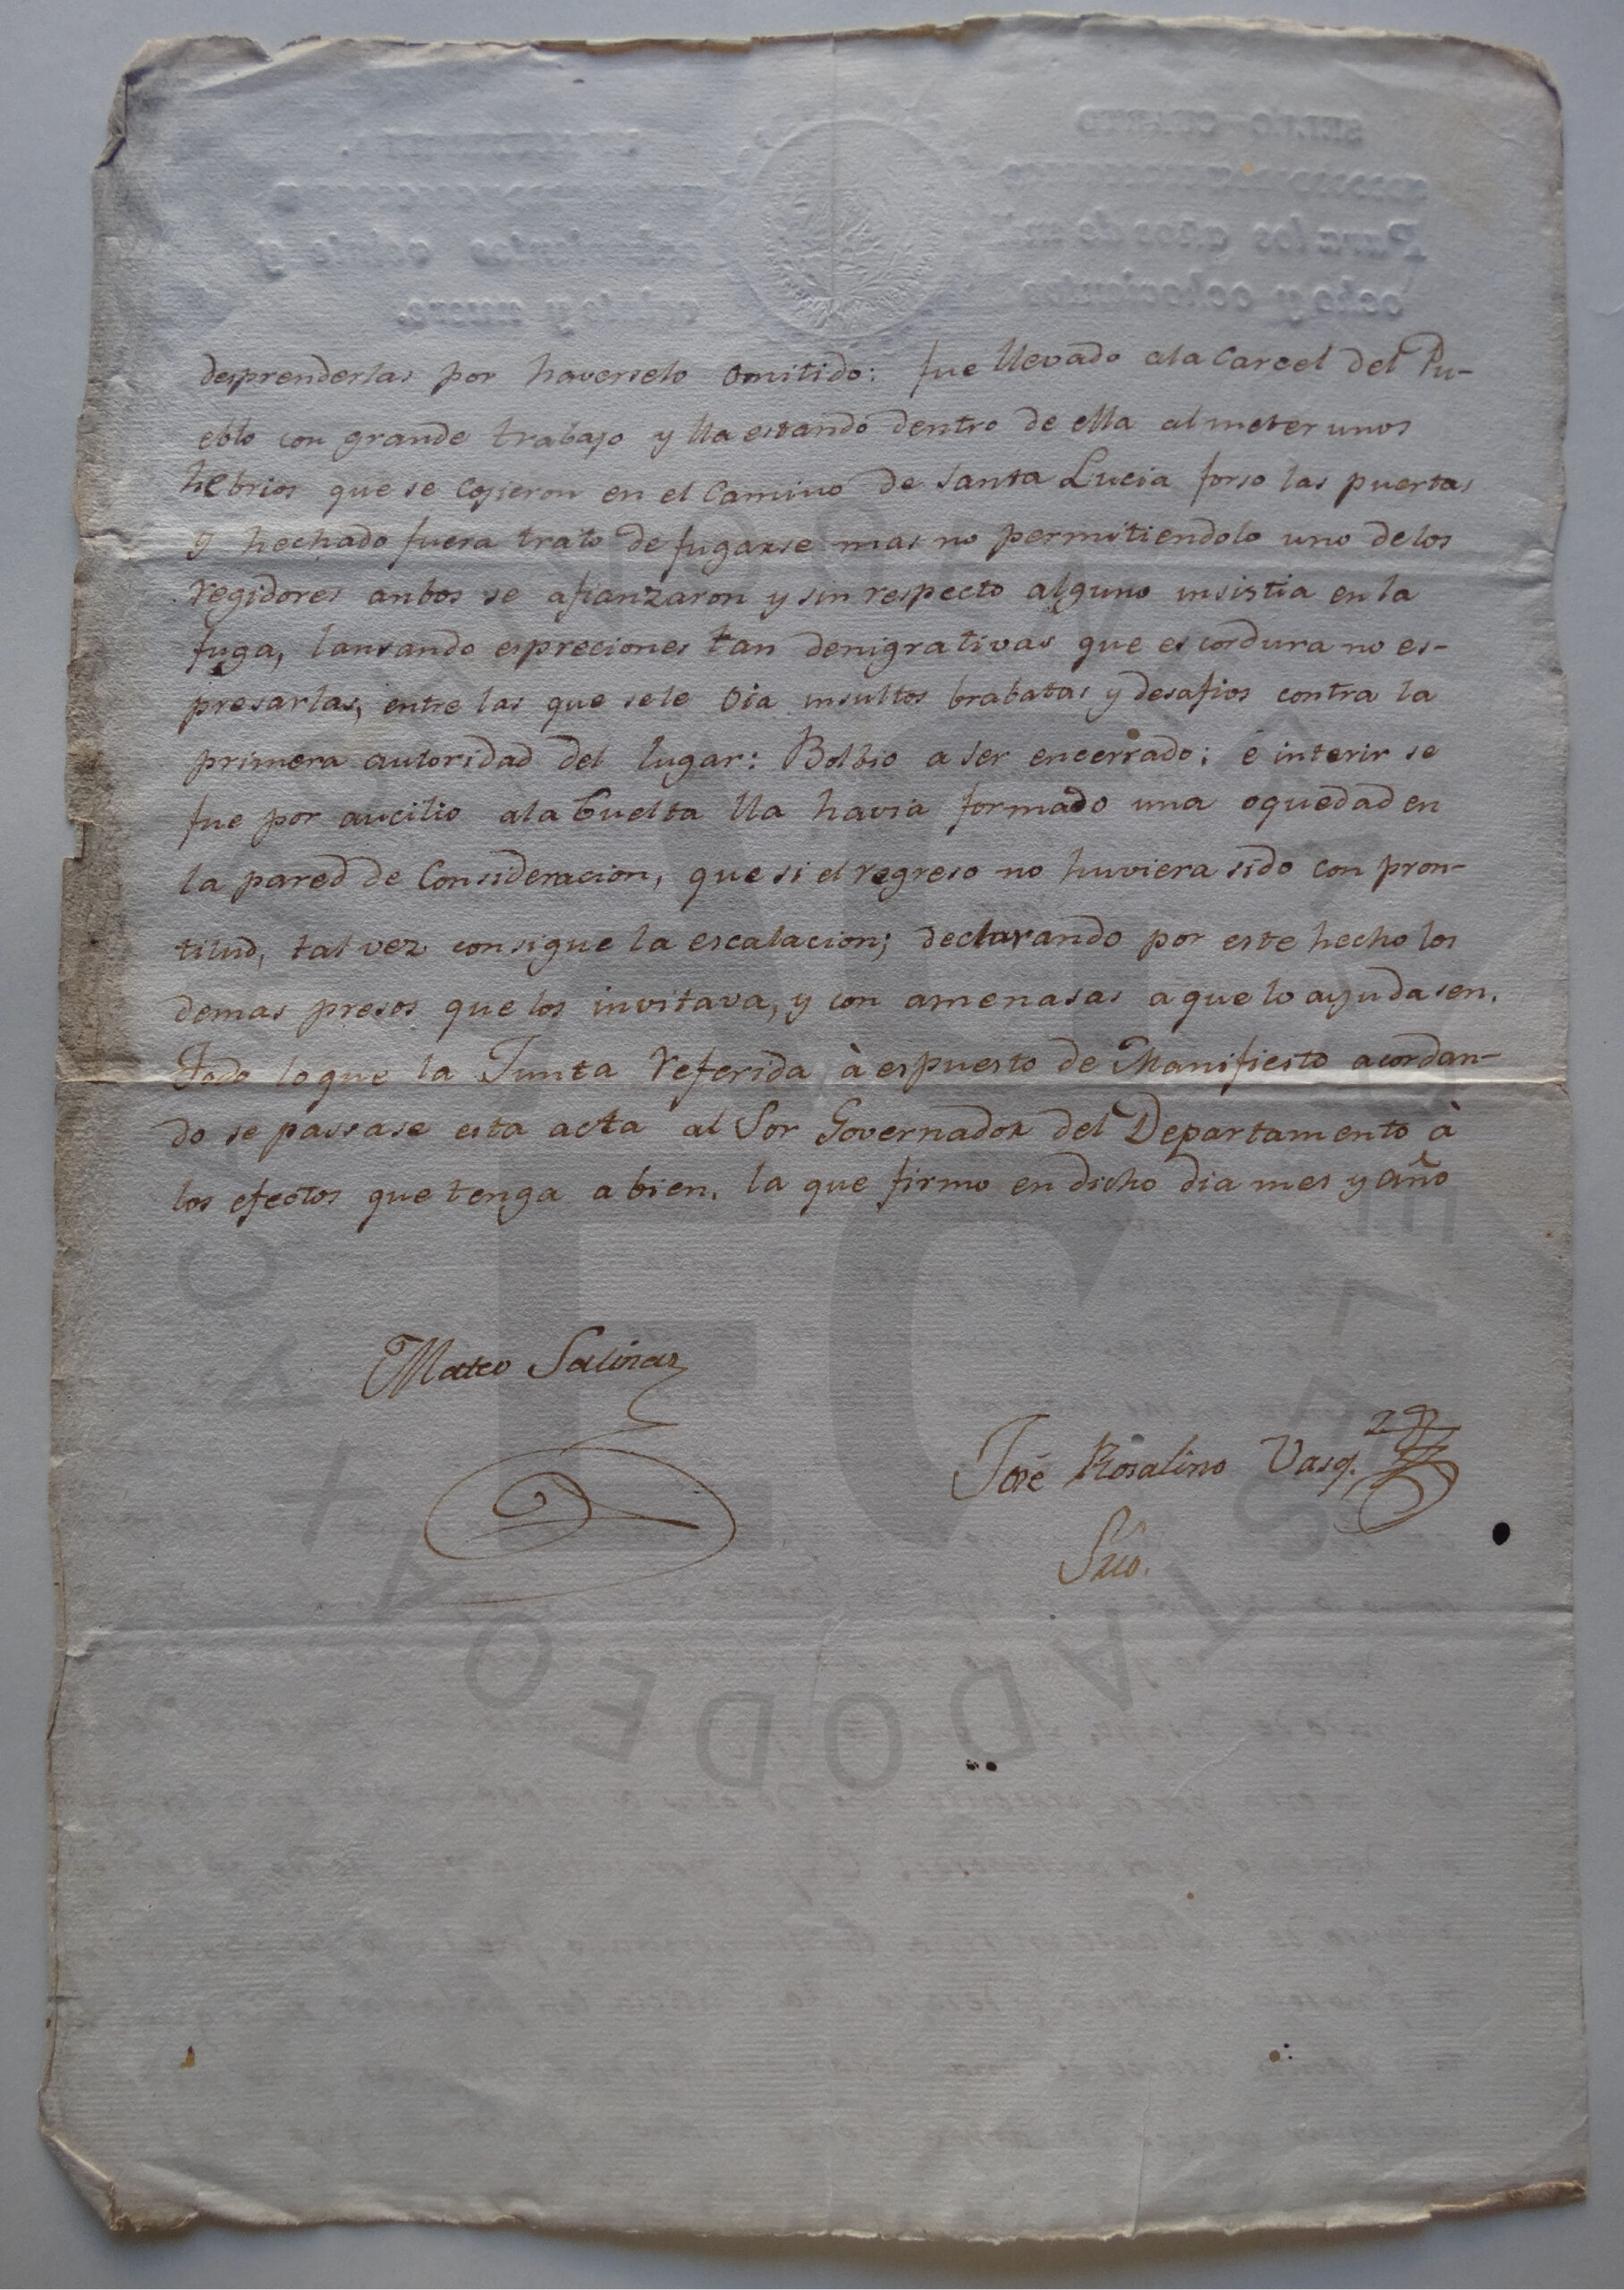 desprenderlas por haverselo omitido: fue llevado ala Carcel del Pu-
eblo con grande trabajo y lla estando dentro de ella al meter unos
hebrios que se cojieron en el Camino de Santa Lucia forso las puertas
y hechado fuera trato de fugarse mas no permitiendolo uno delos
regidores anbos se afianzaron y sin respecto alguno insistia en la
fuga, lansando espreciones tan denigrativas que es cordura no es-
presarlas, entre las que sele oia insultos brabatas y desafios contra la
primera autoridad del lugar: Bolbio a ser encerrado; é interir se
fue por aucilio ala buelta lla havia formado una oquedad en
la pared de Consideracion, que si el regreso no huviera sido con pron-
titud, tal vez consigue la escalacion; declarando por este hecho los
demas presos que los invitava, y con amenasas a que lo ayudasen.
Todo lo que la Junta referida à espuesto de Manifiesto acordan-
do se passase esta acta al Sor Governador del Departamento à
los efectos que tenga a bien, la que firmo en dicho dia mes y año
Mateo Salinas
José Rosalino Vasq. z
Srio.